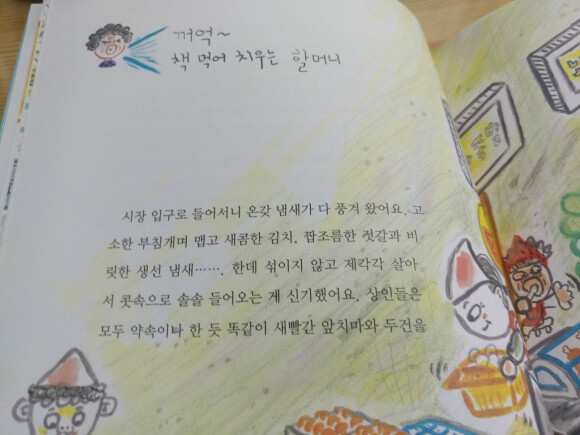 꺼억~
책 먹어 치우는 할머니
시장 입구로 들어서니 온갖 냄새가 다 풍겨 왔어요. 고
소한 부침개며 맵고 새콤한 김치, 짭조름한 젓갈과 비
릿한 생선 냄새……. 한데 섞이지 않고 제각각 살아
서 콧속으로 솔솔 들어오는 게 신기했어요. 상인들은
모두 약속이나 한 듯 똑같이 새빨간 앞치마와 두건을